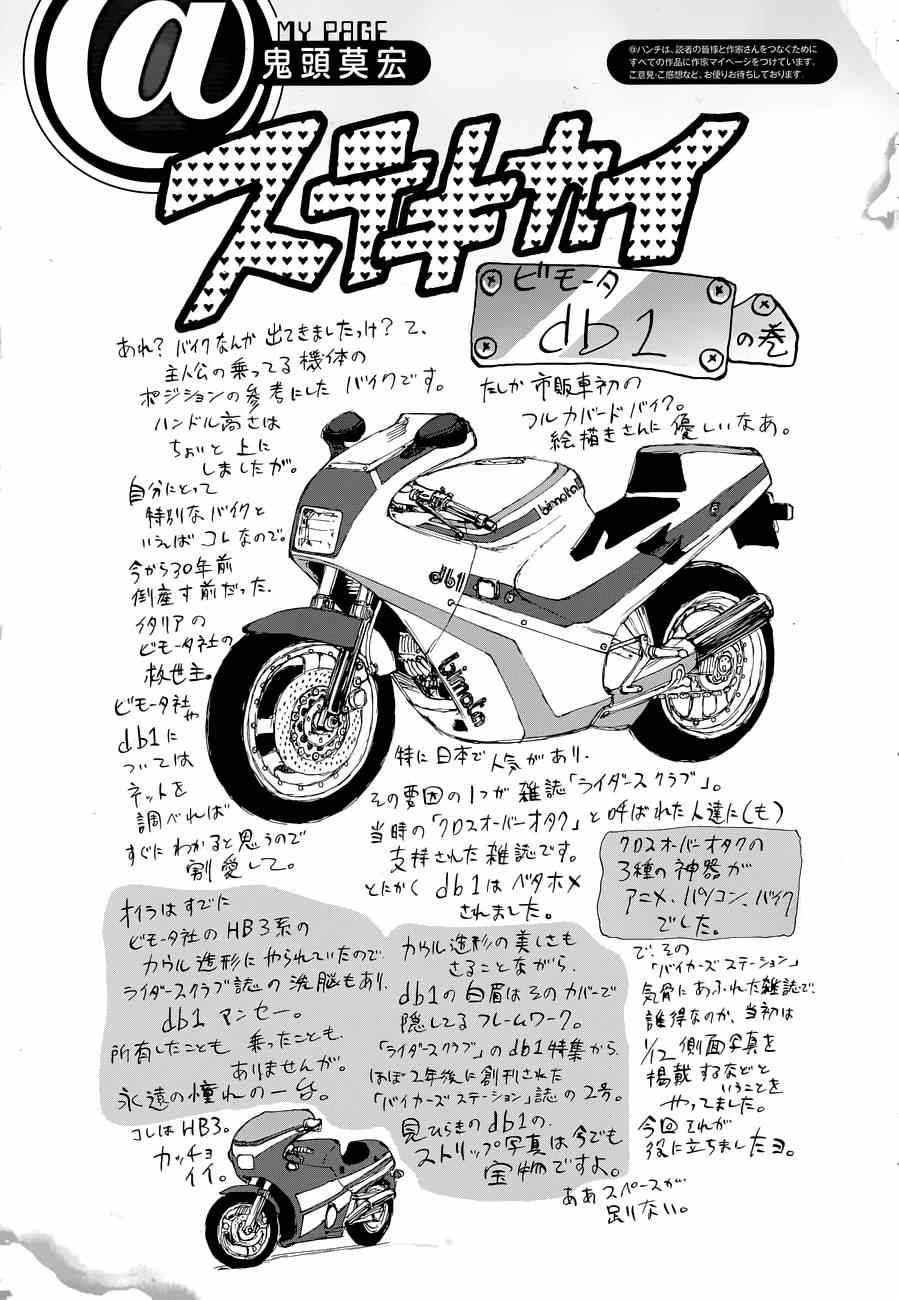 @
MY PAGE
鬼頭莫宏
@バンチは、読者の皆様と作家さんをつなぐために
すべての作品に作家マイページをつけています。
ご意見・ご感想など、お便りお待ちしております。
ステキカイ
ビモータ
db1
の巻
あれ?バイクなんか出てきましたっけ?て、
主人公の乗ってる機体の
ポジションの参考にしたバイクです。
ハンドル高さは
ちょいと上に
しましたが。
たしか市販車初の
フルカバードバイク。
絵描きさんに優しいなあ。
自分にとって
特別なバイクと
いえばコレなので。
今から30年前
倒産寸前だった
イタリアの
ビモータ社の
救世主。
ビモータ社や
db1に
ついては
ネットを
調べれば
すぐにわかると思うので
割愛して。
bimota
db1
bimota
特に日本で人気があり、
その要因の1つが雑誌「ライダースクラブ」。
当時の「クロスオーバーオタク」と呼ばれた人達に(も)
支持された雑誌です。
とにかくdb1はベタホメ
されました。
クロスオーバーオタクの
3種の神器が
アニメ、パソコン、バイク
でした。
オイラはすでに
ビモータ社のHB3系の
カウル造形にやられていたので
ライダースクラブ誌の洗脳もあり、
db1マンセー。
所有したことも乗ったことも
ありませんが。
永遠の憧れの一台。
コレはHB3。
カッチョ
イイ。
カウル造形の美しさも
さることながら、
db1の白眉はそのカバーで
隠してるフレームワーク。
「ライダースクラブ」のdb1特集から
ほぼ2年後に創刊された
「バイカーズステーション」誌の2号。
見ひらきのdb1の
ストリップ写真は今でも
宝物ですよ。
で、その
「バイカーズステーション」
気骨にあふれた雑誌で、
誰得なのか、当初は
1/12側面写真を
掲載するなどと
いうことを
やってました。
今回それが
役に立ちましたヨ。
ああスペースが
足りない。